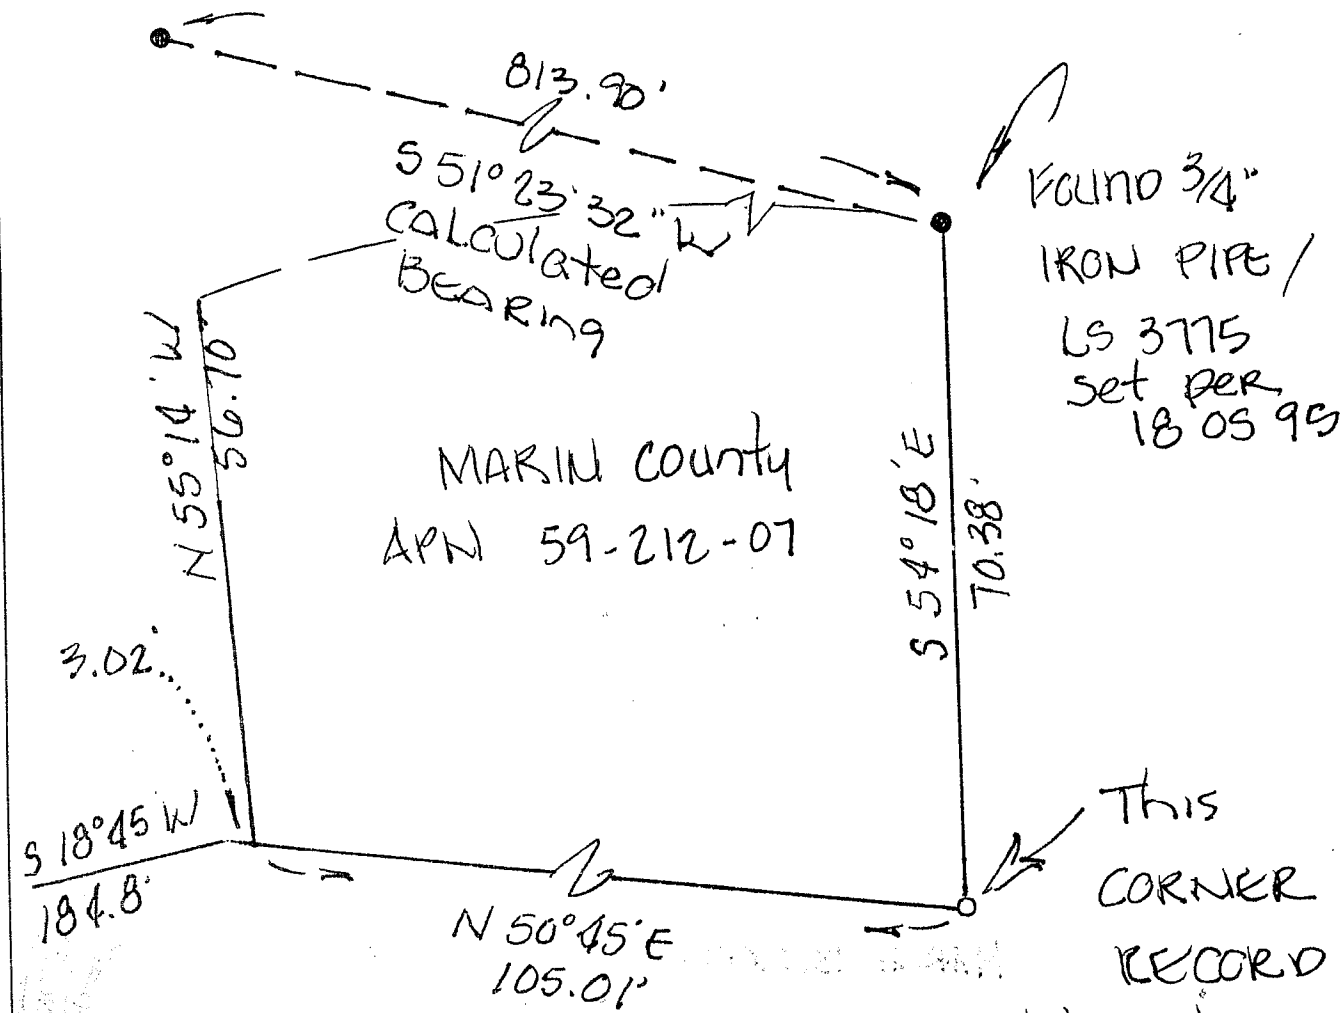 813.90'
S 51° 23' 32" W
CALCULATED
BEARING
FOUND 3/4"
IRON PIPE /
LS 3775
set per
18 OS 95
N 55° 14' W
56.70
MARIN County
APN 59-212-07
S 54° 18' E
70.38'
3.02'
S 18° 45 W
184.8'
N 50° 45' E
105.01'
This
CORNER
RECORD